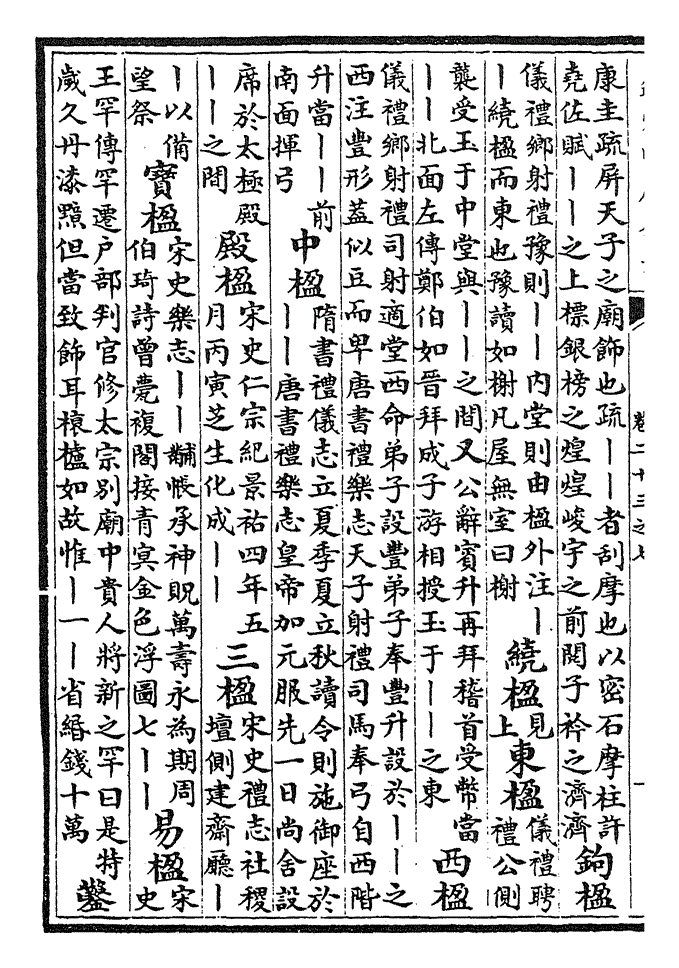 卷二十三之七
康圭疏屏天子之廟飾也疏丨丨者刮摩也以密石摩柱許
堯佐賦丨丨之上標銀榜之煌煌峻宇之前閲子衿之濟濟
鉤楹
儀禮鄉射禮豫則丨丨内堂則由楹外注丨
丨繞楹而東也豫讀如榭凡屋無室曰榭
繞楹
見
上
東楹
儀禮聘
禮公側
襲受玉于中堂與丨丨之間又公辭賓升再拜稽首受幣當
丨丨北面左傳鄭伯如晉拜成子游相授玉于丨丨之東
西楹
儀禮鄉射禮司射適堂西命弟子設豐弟子奉豐升設於丨丨之
西注豐形蓋似豆而卑唐書禮樂志天子射禮司馬奉弓自西階
升當丨丨前
南面揮弓
中楹
隋書禮儀志立夏季夏立秋讀令則施御座於
丨丨唐書禮樂志皇帝加元服先一日尚舍設
席於太極殿
丨丨之間
殿楹
宋史仁宗紀景祐四年五
月丙寅芝生化成丨丨
三楹
宋史禮志社稷
壇側建齋廳丨
丨以備
望祭
寶楹
宋史樂志丨丨黼帳承神貺萬壽永為期周
伯琦詩曾甍複閣接青冥金色浮圖七丨丨
易楹
宋
史
王罕傳罕遷户部判官修太宗别廟中貴人將新之罕曰是特
歲久丹漆黯但當致飾耳榱櫨如故惟丨一丨省緡錢十萬
鑿